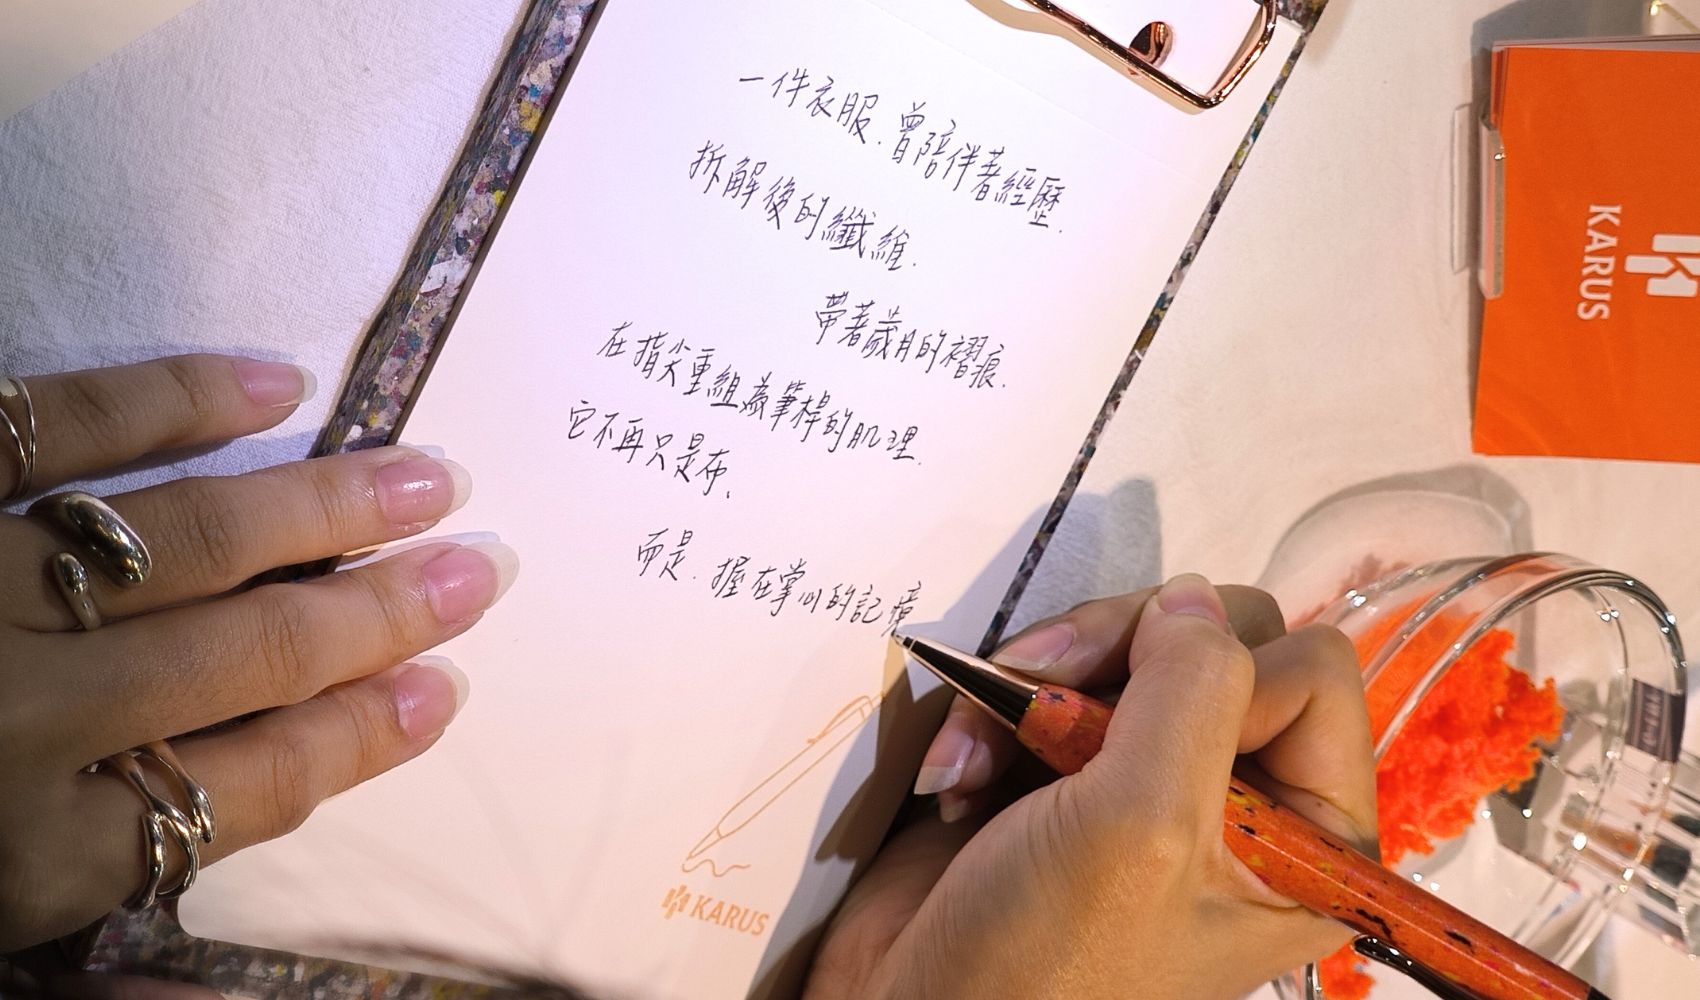 一件衣服.曾陪伴著經歷.
拆解後的纖維.
帶著歲月的褶痕.
在指尖重組為筆桿的肌理.
它不再只是布.
而是.握在掌心的記憶
KARUS
KARUS